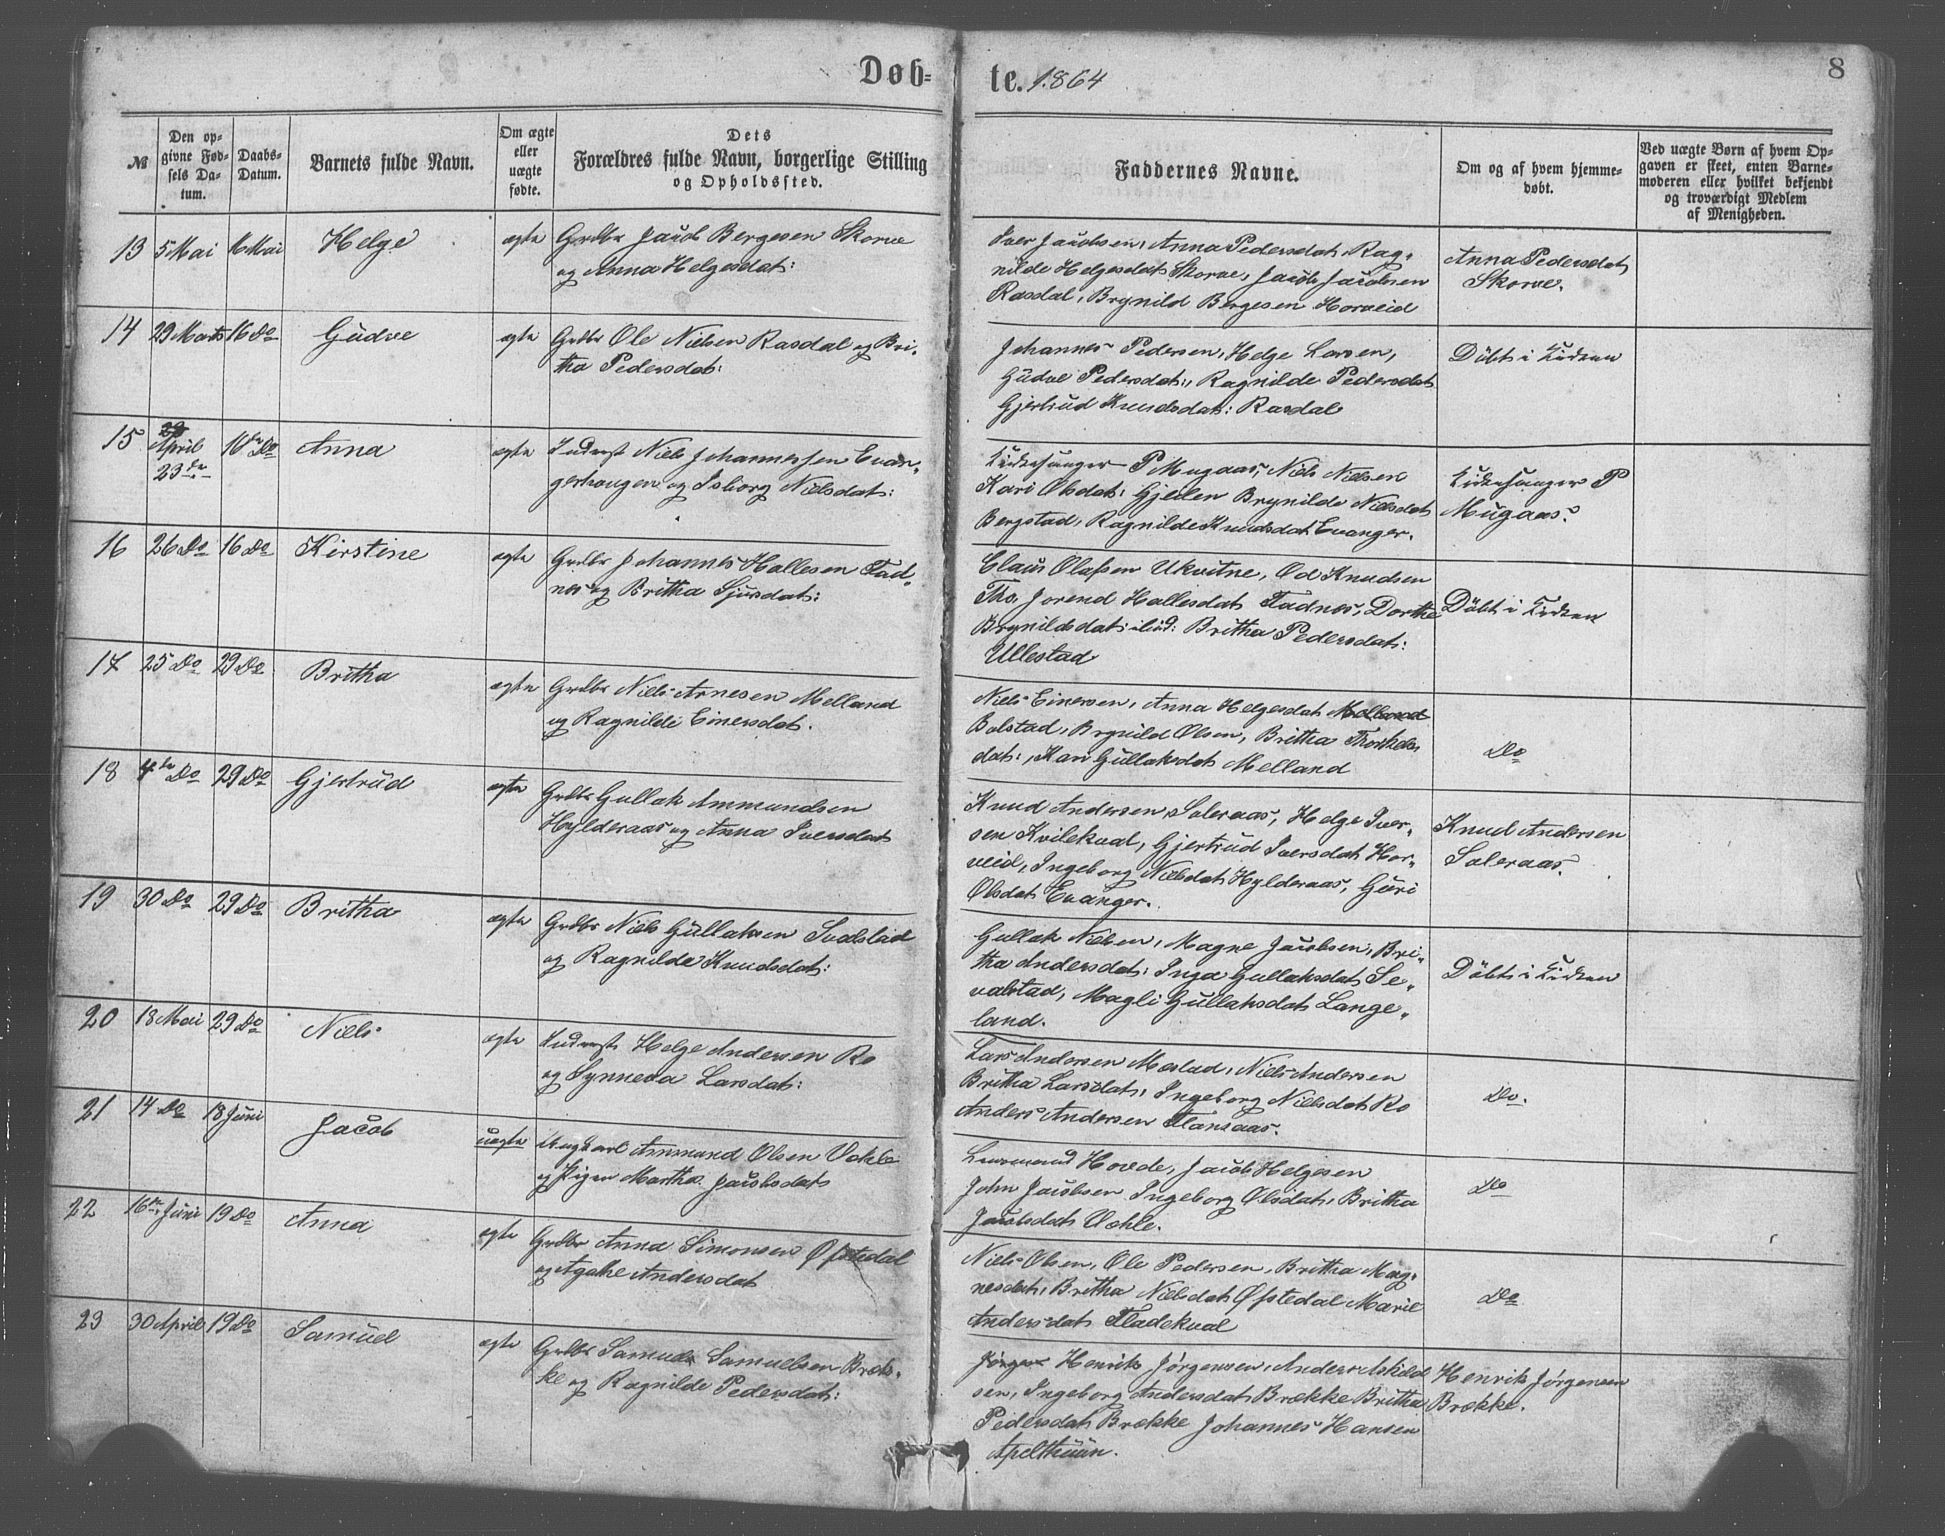 Døb=
te. 1864
8
№
Den op-
givne Fød-
sels Da-
tum.
Daabs-
Datum.
Barnets fulde Navn.
Om ægte
eller
uægte
fødte.
Dets
Forældres fulde Navn, borgerlige Stilling
og Opholdssted.
Faddernes Navne.
Om og af hvem hjemme-
døbt.
Ved uægte Børn af hvem Op-
gaven er skeet, enten Barne-
moderen eller hvilket bekjendt
og troværdigt Medlem
af Menigheden.
13
5 Mai
16 Mai
Helge
ægte
Grdbr Jacob Bergesen Skorve
og Anna Helgesdat:
Iver Jacobsen, Anna Pedersdat Rag-
nilde Helgesdat Skorve, Jacob Jacobsen
Rasdal, Brynild Bergesen Horveid
Anna Pedersdat
Skorve.
14
29 Marts
16 Do
Gudve
ægte
Grdbr Ole Nielsen Rasdal og Bri-
tha Pedersdat:
Johannes Pedersen, Helge Larsen,
Gudve Pedersdat:, Ragnilde Pedersdat
Gjertrud Knudsdat: Rasdal
Döbt i Kirken
15
April
23de
16de Do
Anna
ægte
Inderst Niels Johannessen Evan-
gerhaugen og Isborg Nielsdat:
Kirkesanger P Mugaas, Niels Nielsen
Kari Olsdat: Gjelen Brynilde Nielsdat
Bergstad, Ragnilde Knudsdat Evanger.
Kirkesanger P
Mugaas.
16
26 Do
16 Do
Kirstine
ægte
Grdbr Johannes Hallesen Fad-
nes og Britha Sjursdat:
Claus Olafsen Ukvitne, Od Knudsen
Tho, Jorend Hallesdat Fadnes, Dorthe
Brynildsdat: ibid: Britha Pedersdat:
Ullestad
Döbt i Kirken
17
25 Do
29 Do
Britha
ægte
Grdbr Niels Arnesen Melland
og Ragnilde Einersdat.
Niels Einersen, Anna Helgesdat Melland
Bolstad, Brynild Olsen, Britha Thorkels
dat:, Kari Gullaksdat Melland
Do
18
4de Do
29 Do
Gjertrud
ægte
Grdbr Gullak Ammundsen
Hylderaas og Anna Iversdat
Knud Andersen Soleraas, Helge Iver-
sen Kvilekval, Gjertrud Iversdat Hor-
veid, Ingeborg Nielsdat Hylderaas, Guri
Olsdat Evanger.
Knud Andersen
Soleraas.
19
30 Do
29 Do
Britha
ægte
Grdbr Niels Gullaksen
og Ragnilde Knudsdat:
Gullak Nielsen, Magne Jacobsen, Bri-
tha Andersdat: Inga Gullaksdat Se-
valstad, Magli Gullaksdat Lange-
land.
Döbt i Kirken
20
18 Mai
29 Do
Niels
ægte
Inderst Helge Andersen Ro
og Synneva Larsdat:
Lars Andersen Mestad, Niels Andersen
Britha Larsdat, Ingeborg Nielsdat Ro
Anders Andersen
Do.
21
14 Do
18 Juni
Jacob
uægte
Ungkarl Ammund Olsen Væhle
og Pigen Martha Jacobsdat
Lensmand Horvede, Jacob Helgesen
John Jacobsen Ingeborg Olsdat, Britha
Jacobsdat Væhle.
Do
22
16de Juni
19 Do
Anna
ægte
Grdbr Anna Simonsen Øfstedal
og Agathe Andersdat
Niels Olsen, Ole Pedersen, Britha Mag-
nesdat, Britha Nielsdat Øfstedal Marie
Andersdat Fladekval
Do
23
30 April
19 Do
Samuel
ægte
Grdbr Samuel Samuelsen Bræk-
ke og Ragnilde Pedersdat:
Jørgen Henrik Jørgensen, Anders Askild
sen, Ingeborg Andersdat Brække Britha
Pedersdat Brække Johannes Hansen
Apelthuun.
Henrik Jørgensen
Brække.